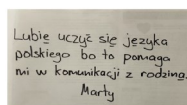 Lubię uczyć się języka
polskiego bo to pomaga
mi w komunikacji z rodziną.
Marty